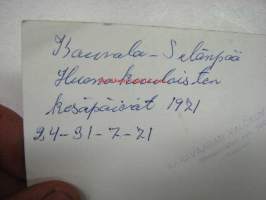 Kaurala - Silänpää
Huonokuuloisten
kesäpäivät 1971
24-31-7-71